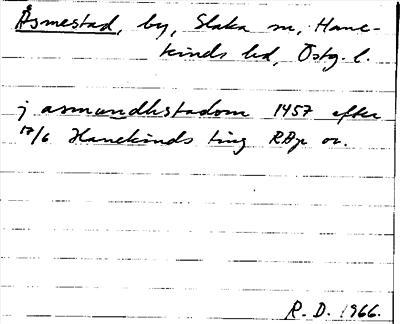 Åsmestad, by, Slaka sn, Hane-
kinds hd, Östg. l.
j asmundhstadom 1457 efter
17/6 Hanekinds ting RAp or.
R. D. 1966.